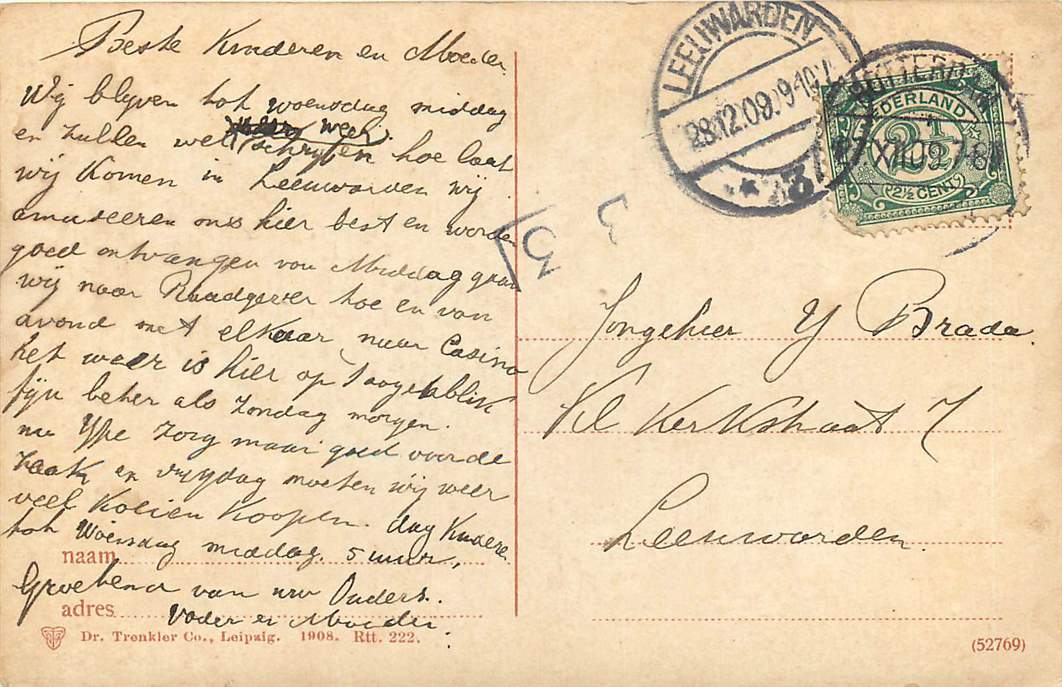 Beste Kinderen en Moeder
Wij blyven tot woensdag middag
en zullen wel weer
schryven hoe laat
wij Komen in Leeuwarden wij
amuseeren ons hier best en worden
goed ontvangen van Middag gaan
wij naar Raadgever hoe en van
avond met elkaar naar Casino
het weer is hier op 't oogenblik
fijn beter als Zondag morgen.
nu Ype Zorg maar goed voor de
Zaak en vrydag moeten wij weer
veel Koeien Koopen. dag Kinderen
tot Woensdag middag. 5 uur,
naam
Groetend van uw Ouders.
adres
Vader en Moeder.
Dr. Trenkler Co., Leipzig. 1908. Rtt. 222.
LEEUWARDEN
28.12.09.9-10V
3
ROTTERDAM
XII 09 7-8
NEDERLAND
2½
2½ CENT
5
Jongeheer Y Brada
Kl Kerkstraat 7
Leeuwarden.
(52769)